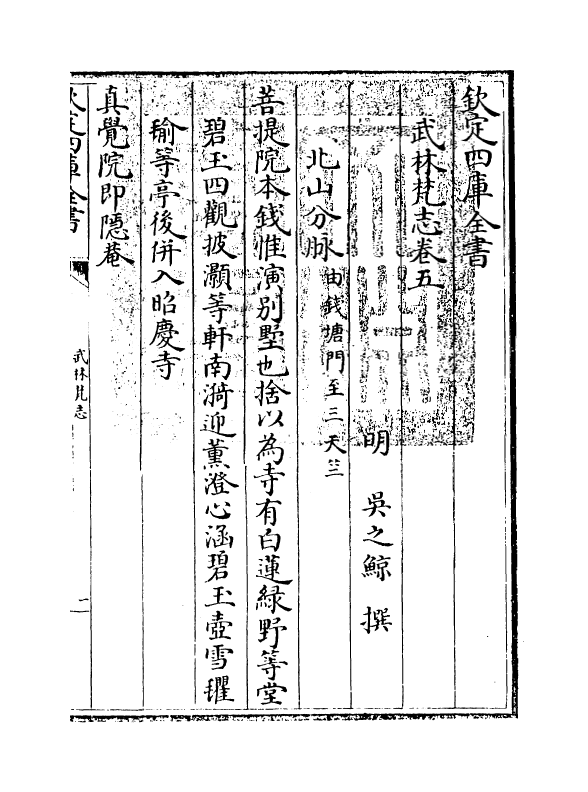 欽定四庫全書
武林梵志卷五
明 吳之鯨 撰
北山分脉由錢塘門至三天竺
菩提院本錢惟演別墅也捨以為寺有白蓮綠野等堂
碧玉四觀披灝等軒南漪迎薰澄心涵碧玉壺雪瓘
瑜等亭後併入昭慶寺
真覺院即隱菴
欽定四庫全書
武林梵志
一